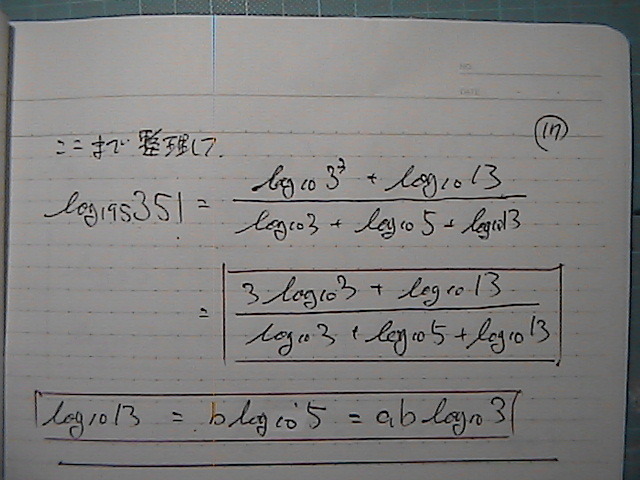 NO.
DATE
(17)
ここまで整理して.
log₁₉₅351 = (log₁₀3³ + log₁₀13) / (log₁₀3 + log₁₀5 + log₁₀13)
= (3log₁₀3 + log₁₀13) / (log₁₀3 + log₁₀5 + log₁₀13)
log₁₀13 = b log₁₀5 = ab log₁₀3